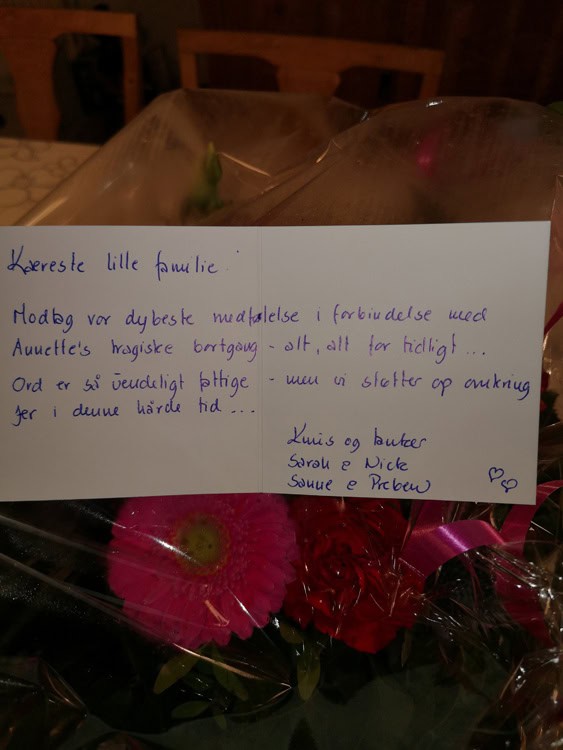 Kæreste lille familie.
Modtag vor dybeste medfølelse i forbindelse med
Annette's tragiske bortgang - alt, alt for tidligt ...
Ord er så uendeligt fattige - men vi støtter op omkring
Jer i denne hårde tid ...
Knus og tanker
Sarah & Nick
Sanne & Preben